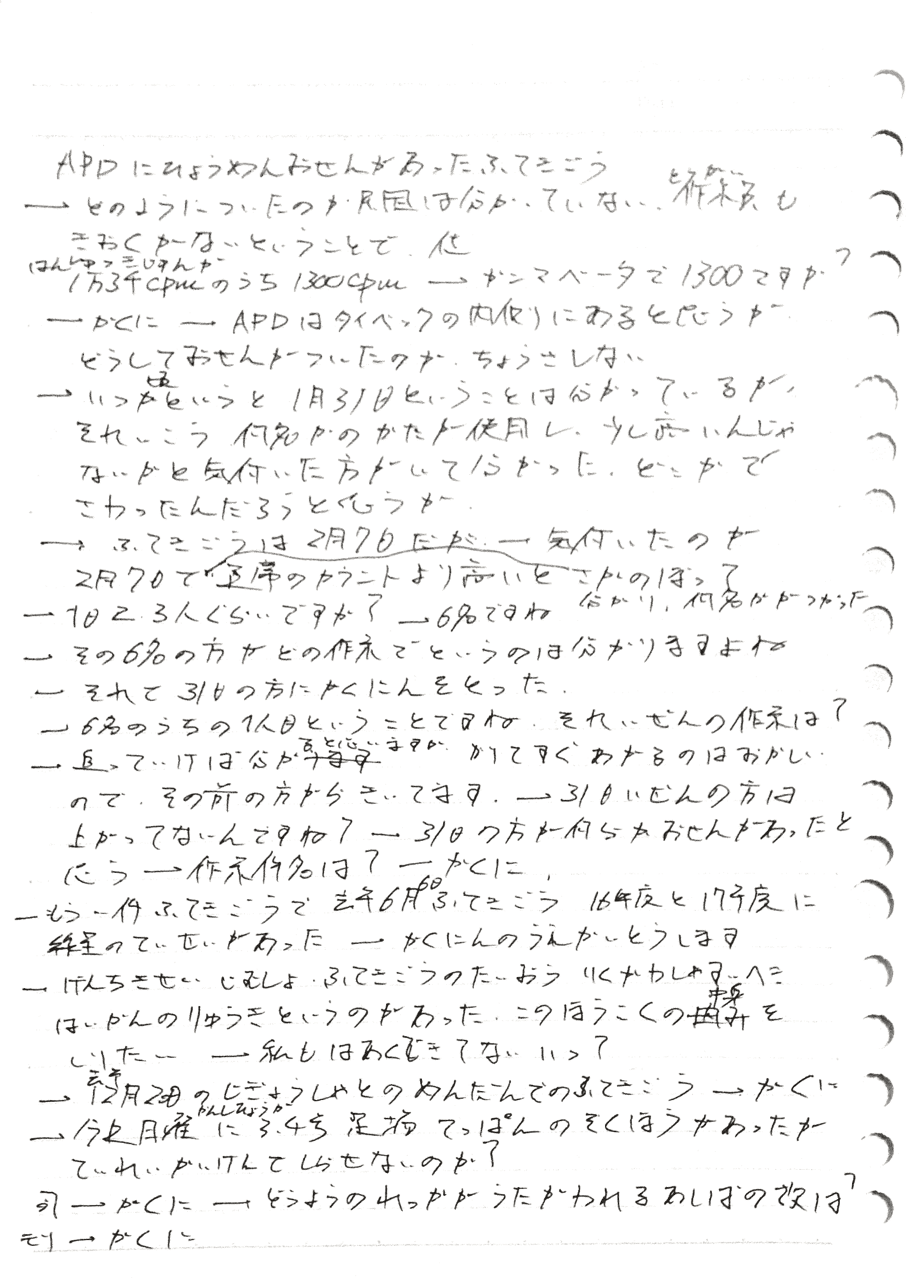 APDにひょうめんおせんがあったふてきごう
→どのようについたのか原因は分かっていない、とうがい作業員も
きおくがないということで、
はんしゅつきじゅんが
1万3千cpmのうち1300cpm→ガンマベータで1300ですか?
→かくに→APDはタイベックの内側にあると思うが
どうしておせんがついたのか、ちょうさしない
→いつ頃かというと1月31日ということは分かっているが、
それいこう何名かのかたが使用し、少し高いんじゃ
ないかと気付いた方がいて分かった、どこかで
さわったんだろうと思うが
→ふてきごうは2月7日だが→気付いたのが
2月7日で通常のカウントより高いとさかのぼって
分かり、何名かがつかった
→1日2、3人ぐらいですか?→6名ですね
→その6名の方がどの作業でというのは分かりますよね
→それで31日の方にかくにんをとった
→6名のうちの1人目ということですね、それいぜんの作業は?
→追っていけば分かると思いますが かりてすぐわかるのはおかしい
ので、その前の方からきいてます→31日いぜんの方は
上がってないんですね?→31日の方が何らかおせんがあったと
思う→作業件名は?→かくに
→もう一件ふてきごうで去年6月6日ふてきごう 16年度と17年度に
線量のていせいがあった→かくにんのうえかいとうします
→げんちきせいじむしょ、ふてきごうのたいおう
はいかんのりゅうきというのがあった、このほうこくの中身を
しりたい→私もはあくできてない
→去年12月2日のじぎょうしゃとのめんだんでのふてきごう→かくに
→今週月曜に3、4号足場てっぱんのそくほうがあったが
ていれいかいけんでしらせないのか?
司→かくに→どうようのれっかがうたがわれるあしばの数は?
モリ→かくに